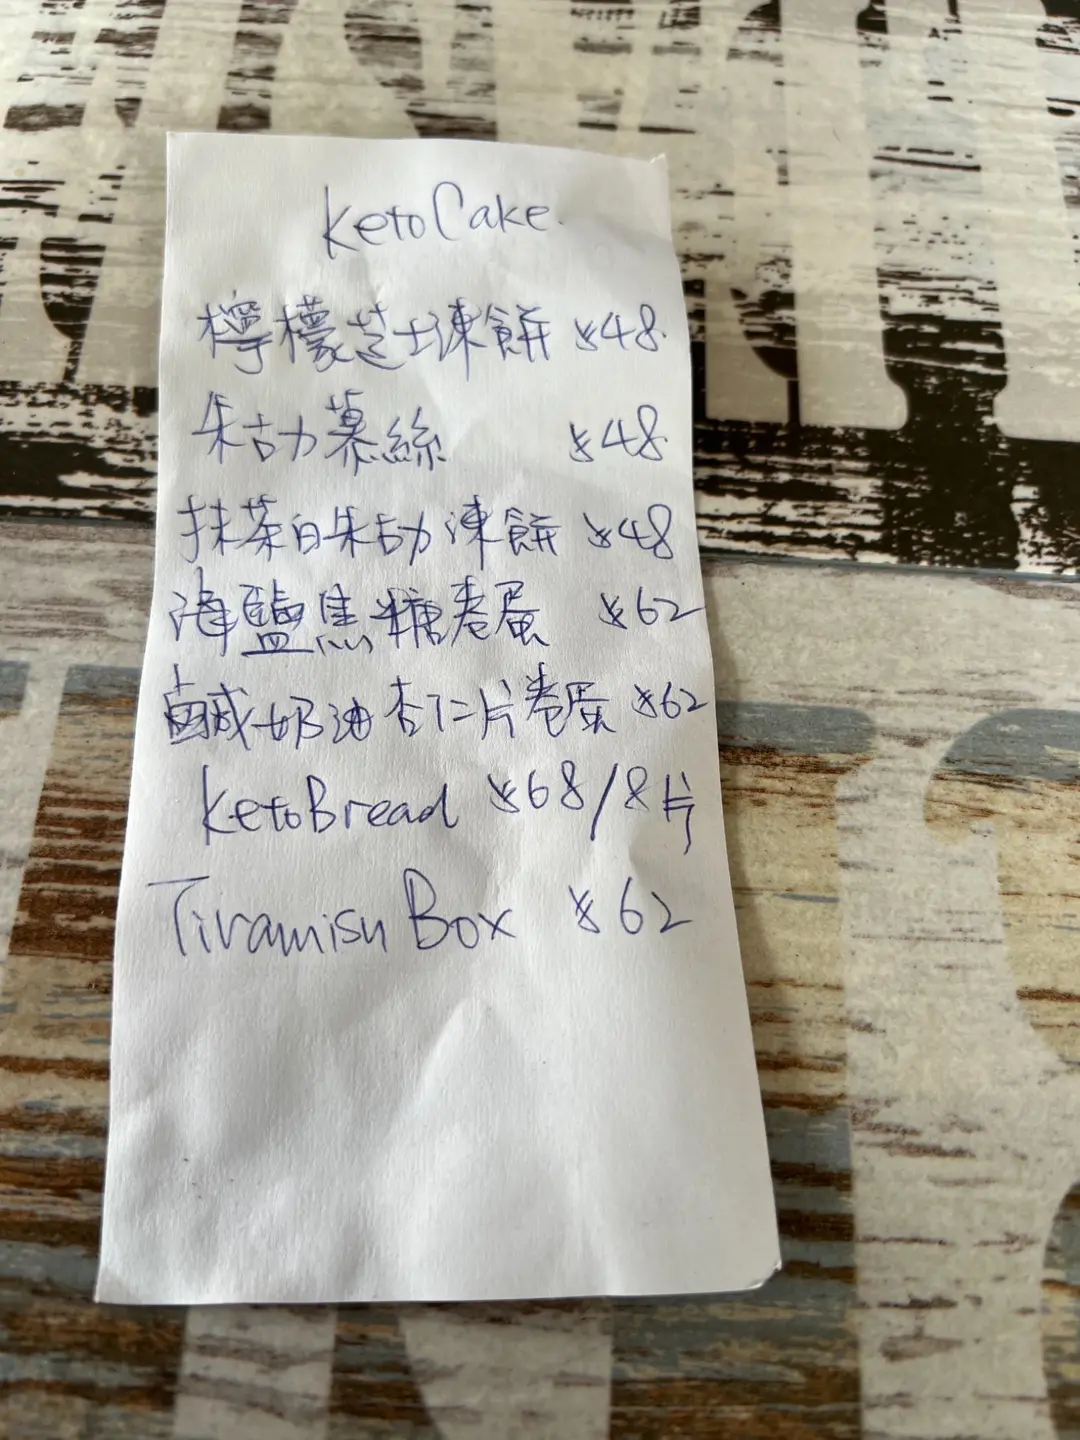 Keto Cake.
檸檬芝士凍餅 $48
朱古力慕絲 $48
抹茶白朱古力凍餅 $48
海鹽焦糖卷蛋 $62
鹹奶油杏仁片卷蛋 $62
Keto Bread $68/8片
Tiramisu Box $62